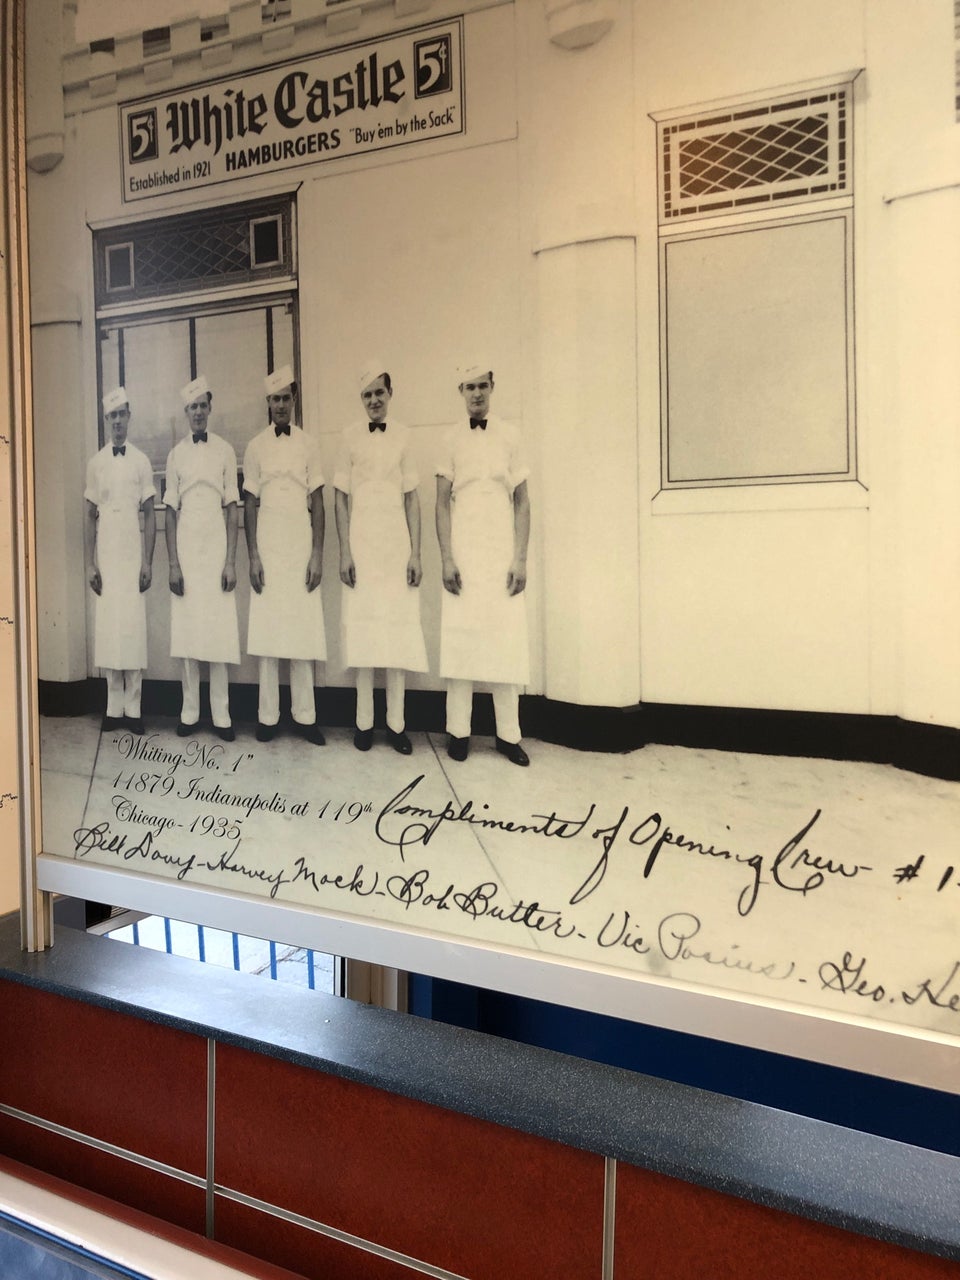 5¢ White Castle 5¢
Established in 1921 HAMBURGERS "Buy 'em by the Sack"
"Whiting No. 1"
11879 Indianapolis at 119th
Chicago - 1935
Compliments of Opening Crew - # 1.
Bill Davy - Harvey Mock - Bob Butler - Vic - Geo.